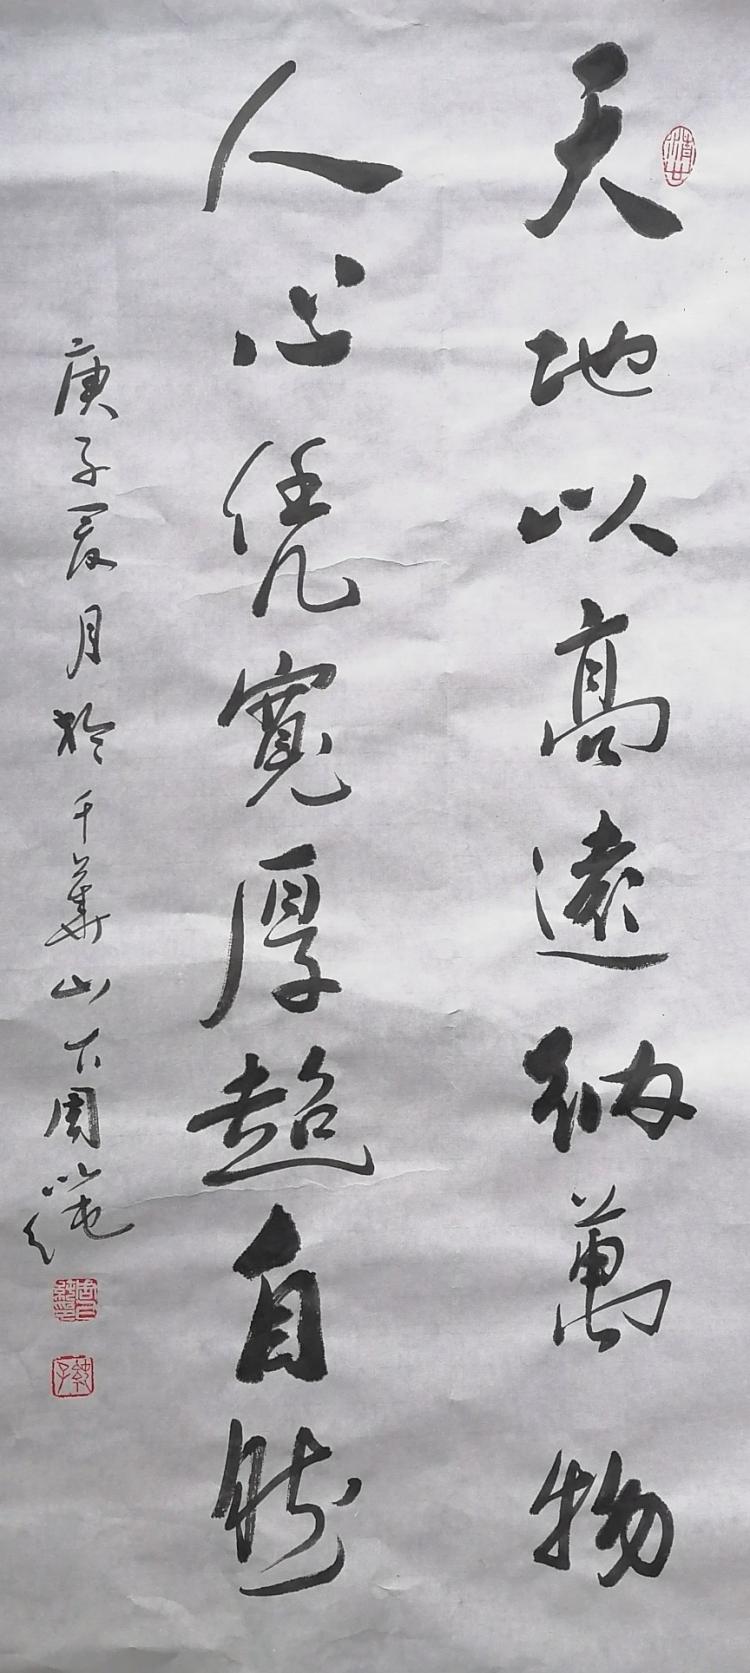 天地以高遠納萬物
人心凭寬厚超自然
庚子夏月於千華山下周